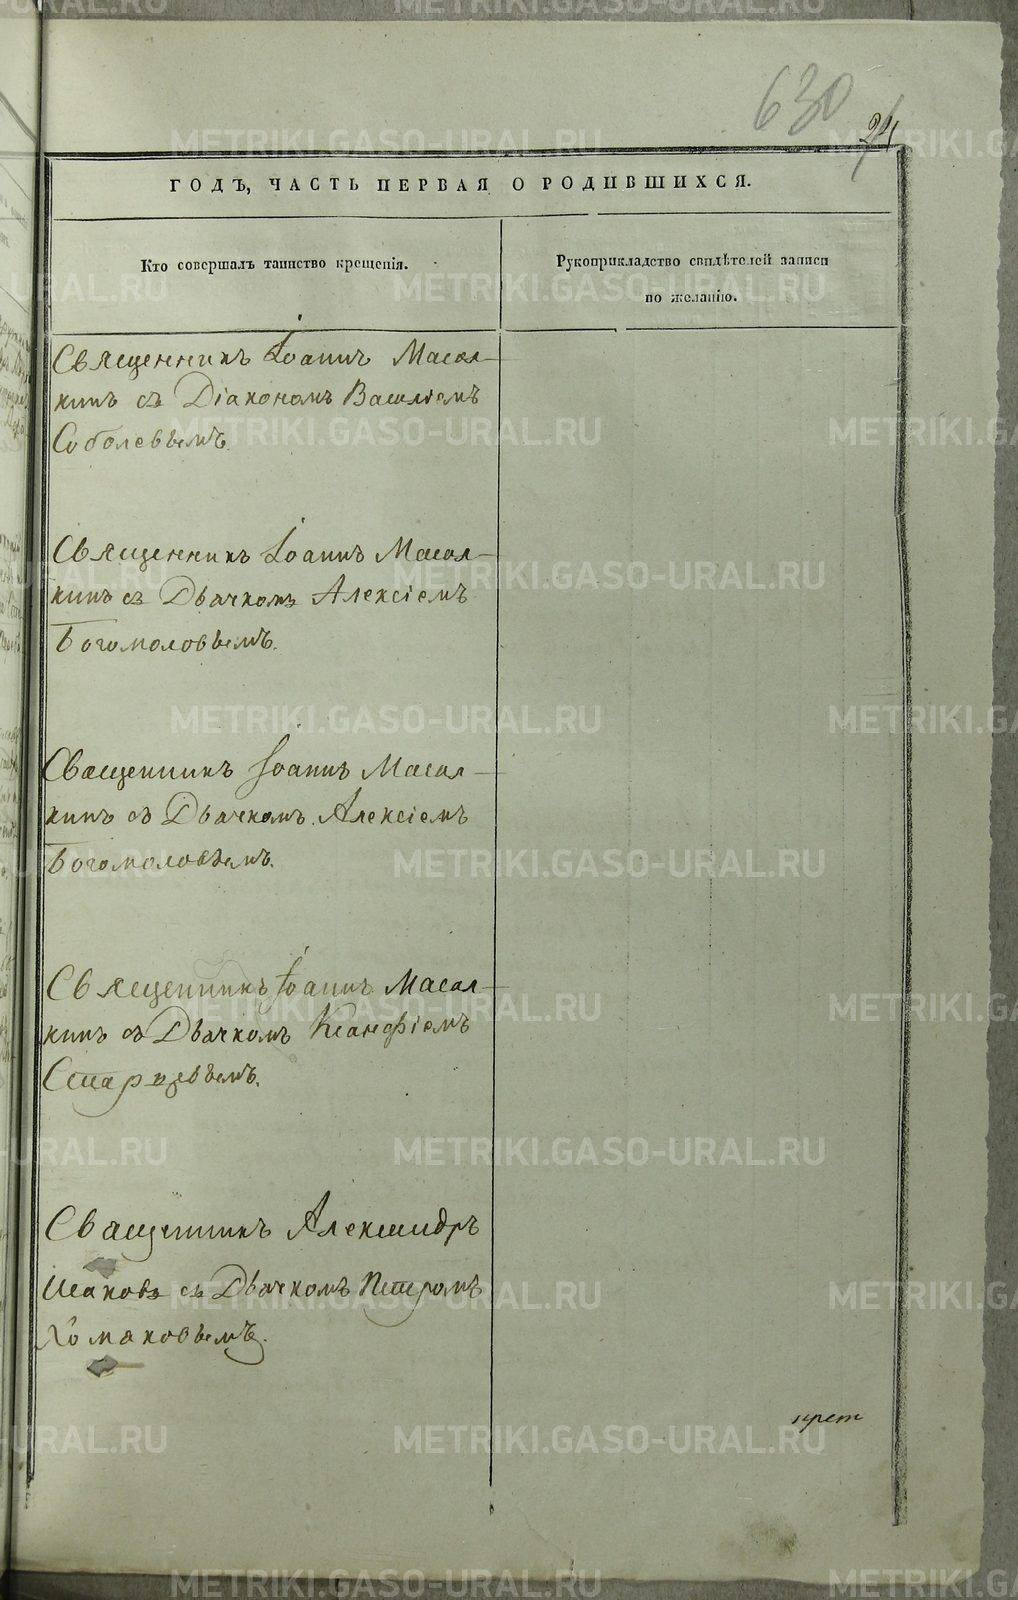 630
24
ГОДЪ, ЧАСТЬ ПЕРВАЯ О РОДИВШИХСЯ.
Кто совершалъ таинство крещенія.
Рукоприкладство свидѣтелей записи
по желанію.
Священникъ Іоаннъ Масал-
кинъ съ Діакономъ Василіемъ
Соболевымъ.
Священникъ Іоаннъ Масал-
кинъ съ Дьячкомъ Алексіемъ
Богомоловымъ.
Священникъ Іоаннъ Масал-
кинъ съ Дьячкомъ Алексіемъ
Богомоловымъ.
Священникъ Іоаннъ Масал-
кинъ съ Дьячкомъ Ксанфіемъ
Старцевымъ.
Священникъ Александръ
Исаковъ съ Дьячкомъ Петромъ
Хомяковымъ.
METRIKI.GASO-URAL.RU